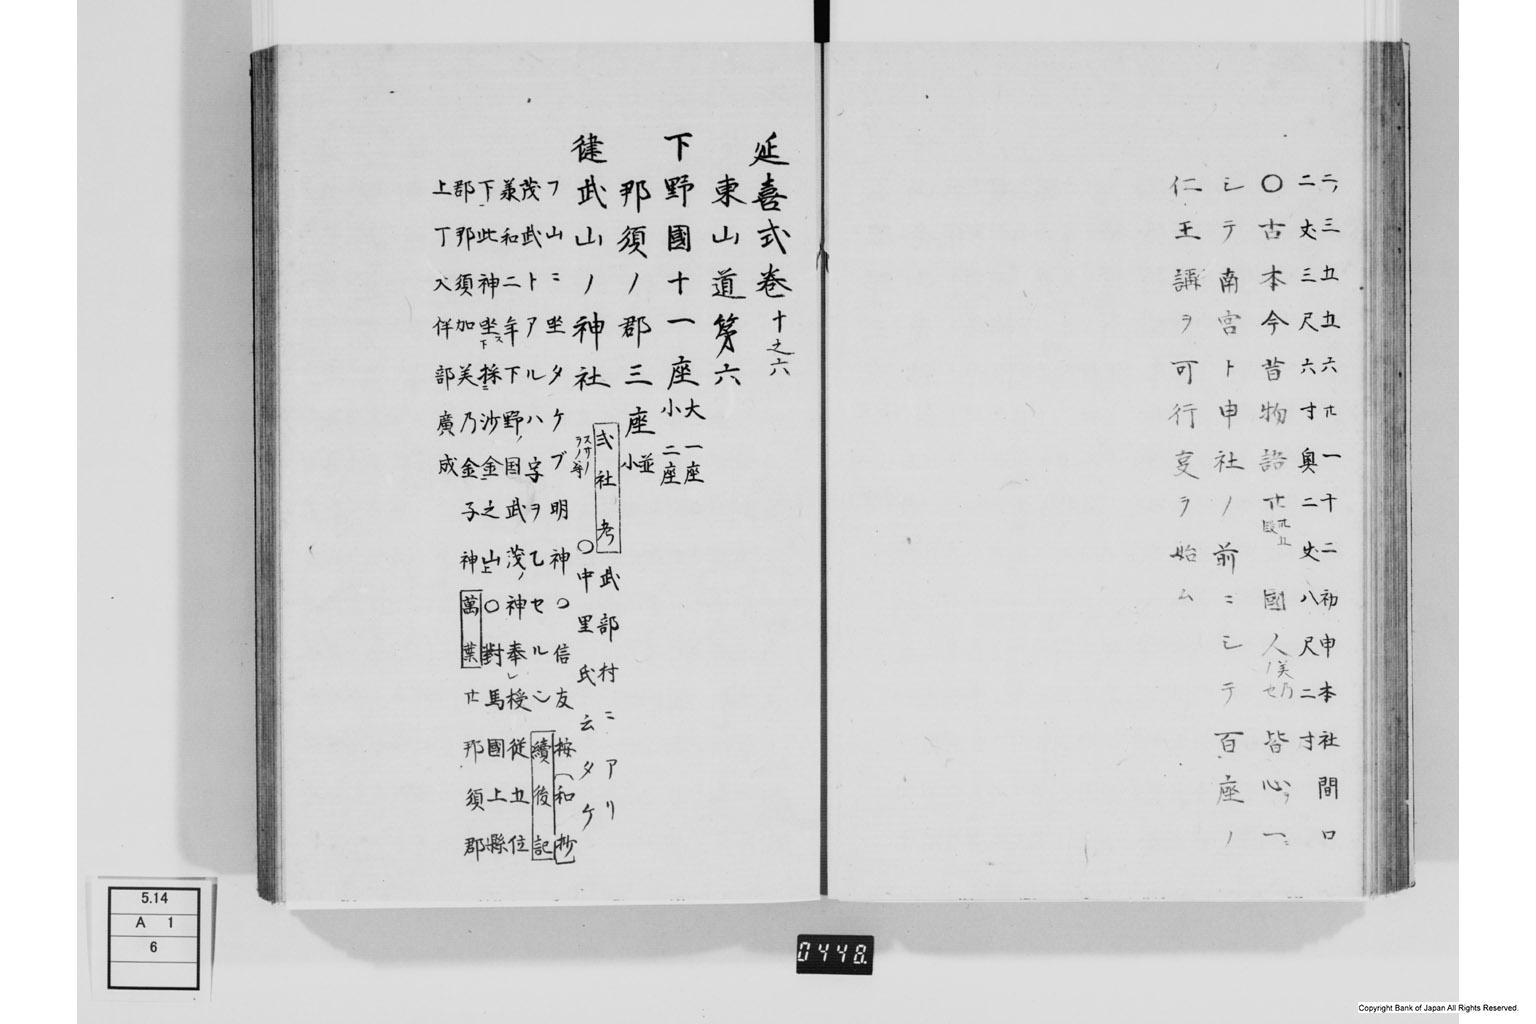 二ノ三五五六ホ一十二初申本社間口
二丈三尺六寸奥二丈八尺二寸
〇古本今昔物語廿 國人ノ 皆心ヲ一ニ
シテ南宮ト申社ノ前ニシテ百座ノ
仁王講ヲ可行㕝ヲ始ム
延喜式卷十之六
東山道第六
下野國十一座大一座小二座
那須ノ郡三座並小
健武山ノ神社
式社考 武部村ニアリ
スサノヲノ尊 〇中里氏云タケ
フ山ニ坐タケブ明神〇信友按(和抄
茂武トアルハ字ヲ乙セルシ續後記
義和二年下野ノ国武茂ノ神奉レ授従五位
下此神坐ス下採沙金之山上〇對馬國上縣
郡那須加美乃金子神 萬葉廿 那須郡
上丁大伴部廣成
5.14
A 1
6
0448.
Copyright Bank of Japan All Rights Reserved.